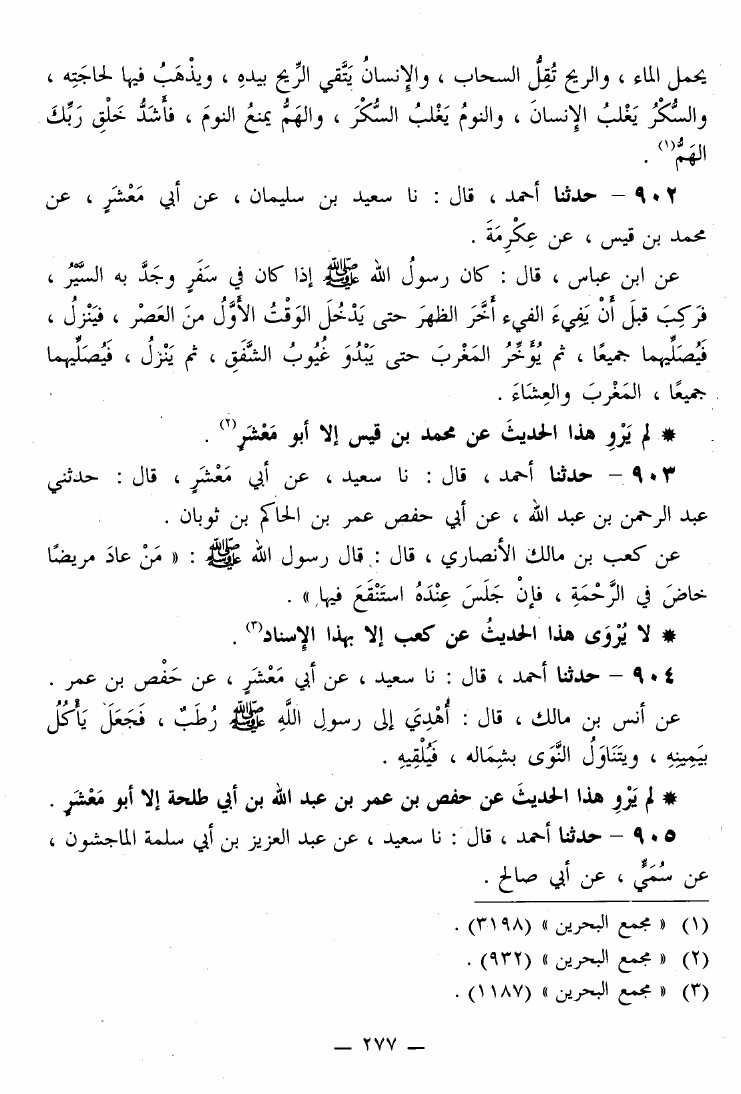 يحمل الماء ، والريح تُقِلُّ السحاب ، والإِنسانُ يَتَّقي الرِّيح بيدهِ ، ويذْهَبُ فيها لحاجَتِه ،
والسُّكْرُ يَغْلبُ الإِنسانَ ، والنومُ يَغْلبُ السُّكْرَ ، والهَمُّ يمنعُ النومَ ، فأَشَدُّ خَلْقِ رَبِّكَ
الهَمُّ(١) .
٩٠٢ – حدثنا أحمد ، قال : نا سعيد بن سليمان ، عن أبي مَعْشَرٍ ، عن
محمد بن قيس ، عن عِكْرِمَةَ .
عن ابن عباس ، قال : كان رسولُ الله ﷺ إذا كان في سَفَرٍ وجَدَّ به السَّيْرُ ،
فرَكِبَ قبلَ أَنْ يَفِيءَ الفيء أَخَّرَ الظهرَ حتى يَدْخُلَ الوَقْتُ الأَوَّلُ منَ العَصْر ، فيَنْزِلُ ،
فَيُصَلِّيهما جميعًا ، ثم يُؤَخِّرُ المَغْربَ حتى يَبْدُوَ غُيُوبُ الشَّفَقِ ، ثم يَنْزلُ ، فَيُصَلِّيهما
جميعًا ، المَغْربَ والعِشَاءَ .
* لم يَرْوِ هذا الحديثَ عن محمد بن قيس إلا أبو مَعْشَرٍ(٢) .
٩٠٣ – حدثنا أحمد ، قال : نا سعيد ، عن أبي مَعْشَرٍ ، قال : حدثني
عبد الرحمن بن عبد الله ، عن أبي حفص عمر بن الحاكم بن ثوبان .
عن كعب بن مالك الأنصاري ، قال : قال رسول الله ﷺ : « مَنْ عادَ مريضًا
خاضَ في الرَّحْمَةِ ، فإنْ جَلَسَ عِنْدَهُ استَنْقَعَ فيها » .
* لا يُرْوَى هذا الحديثُ عن كعب إلا بهذا الإِسناد(٣) .
٩٠٤ – حدثنا أحمد ، قال : نا سعيد ، عن أبي مَعْشَرٍ ، عن حَفْص بن عمر .
عن أنس بن مالك ، قال : أُهْدِيَ إلى رسولِ اللَّهِ ﷺ رُطَبٌ ، فَجَعَلَ يَأْكُلُ
بيَمِينِهِ ، ويتَنَاوَلُ النَّوَى بشِمَاله ، فَيُلْقِيهِ .
* لم يَرْوِ هذا الحديثَ عن حفص بن عمر بن عبد الله بن أبي طلحة إلا أبو مَعْشَرٍ .
٩٠٥ – حدثنا أحمد ، قال : نا سعيد ، عن عبد العزيز بن أبي سلمة الماجشون ،
عن سُمَيٍّ ، عن أبي صالح .
(١) « مجمع البحرين » (٣١٩٨) .
(٢) « مجمع البحرين » (٩٣٢) .
(٣) « مجمع البحرين » (١١٨٧) .
– ٢٧٧ –